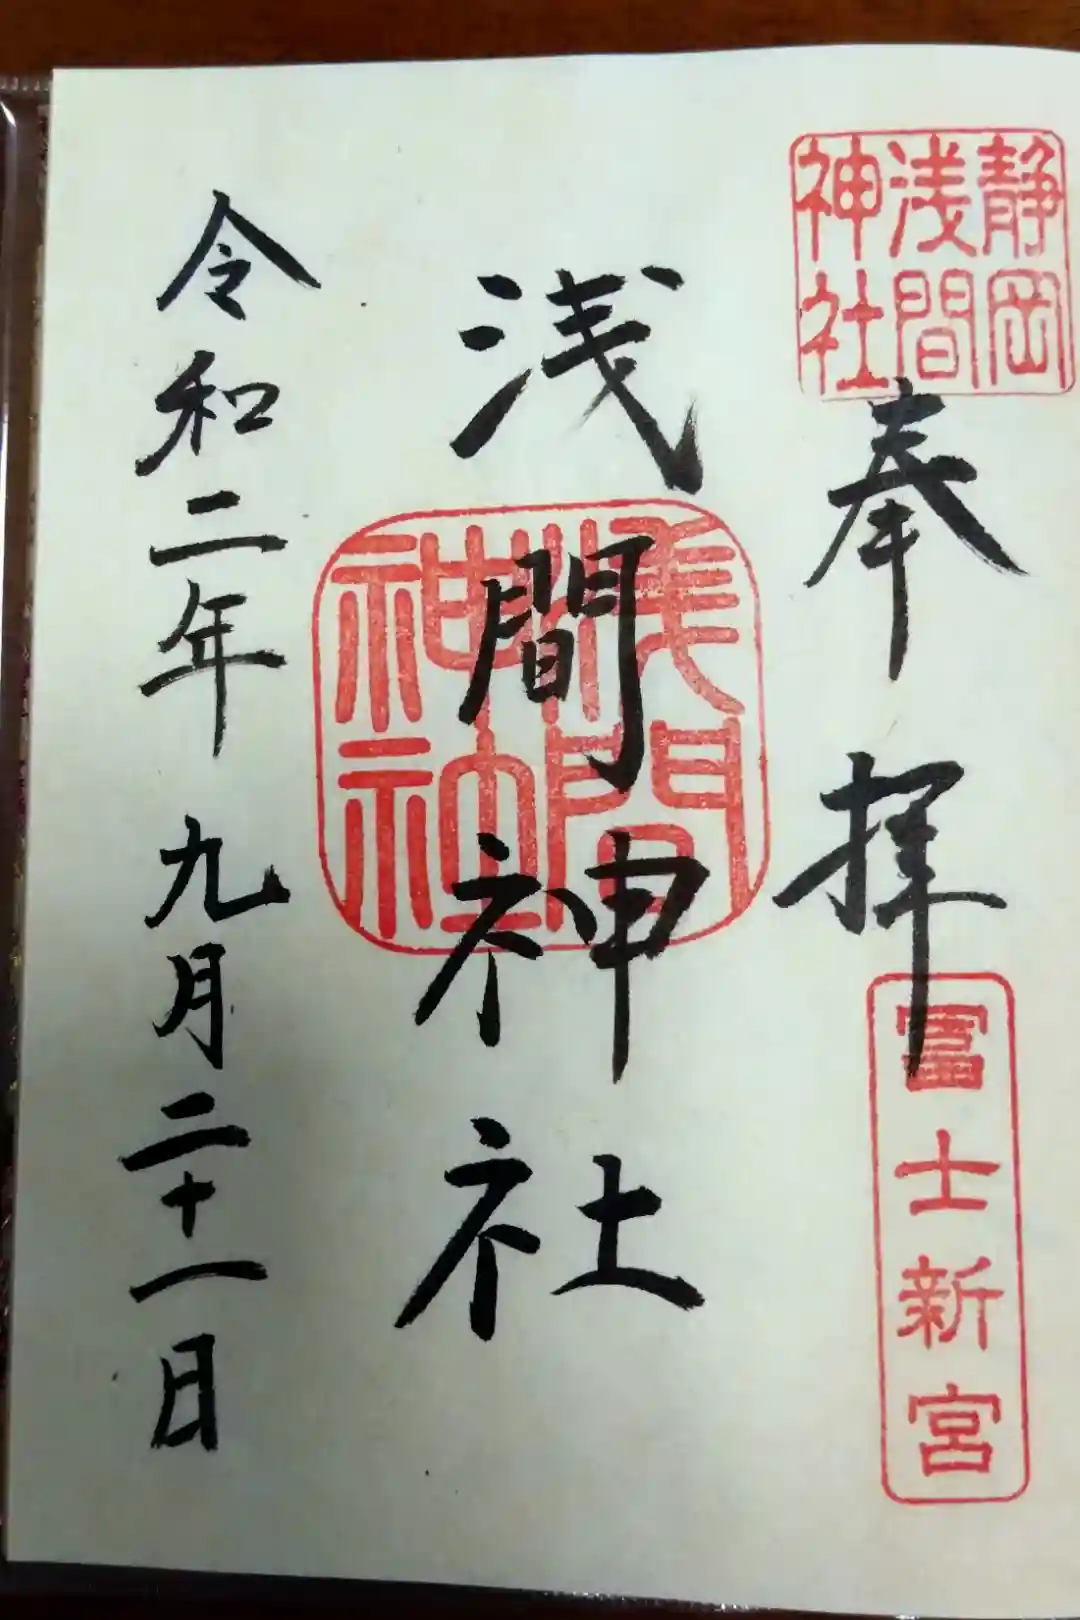 静岡
浅間
神社
奉拝
富士新宮
浅間神社
浅間
神社
令和二年九月二十一日